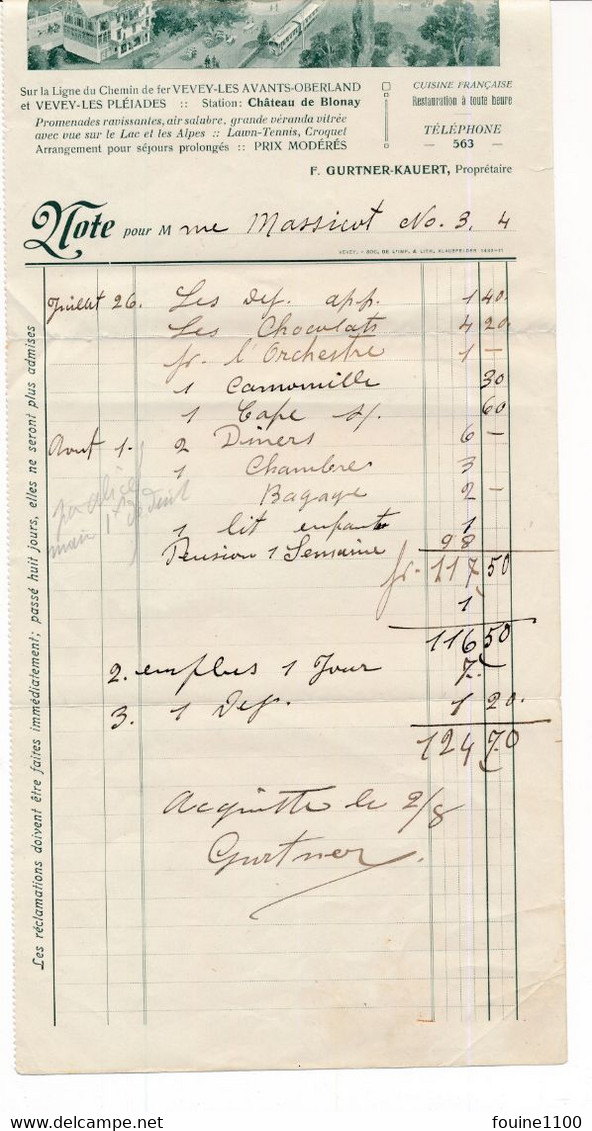 Sur la Ligne du Chemin de fer VEVEY-LES AVANTS-OBERLAND
et VEVEY-LES PLÉIADES :: Station: Château de Blonay
Promenades ravissantes, air salubre, grande véranda vitrée
avec vue sur le Lac et les Alpes :: Lawn-Tennis, Croquet
Arrangement pour séjours prolongés :: PRIX MODÉRÉS
CUISINE FRANÇAISE
Restauration à toute heure
TÉLÉPHONE
563
F. GURTNER-KAUERT, Proprétaire
Note pour Mme Massicot No. 3. 4
VEVEY. - SOC. DE L'IMP. & LITH. KLAUSFELDER
Juillet 26. Les Dej. app. 1 40.
Les Chocolats 4 20.
fr. l'Orchestre 1 —
1 Camomille 30
1 Cafe 60
Aout 1. 2 Diners 6 —
1 Chambre 3
Bagage 2 —
1 lit enfant 1
Pension 1 Semaine 98
fr. 117 50
1
116 50
2. en plus 1 Jour 7.
3. 1 Dej. 1 20.
124 70
Acquitté le 2/8
Gurtner.
Les réclamations doivent être faites immédiatement; passé huit jours, elles ne seront plus admises
fouine1100
delcampe.net